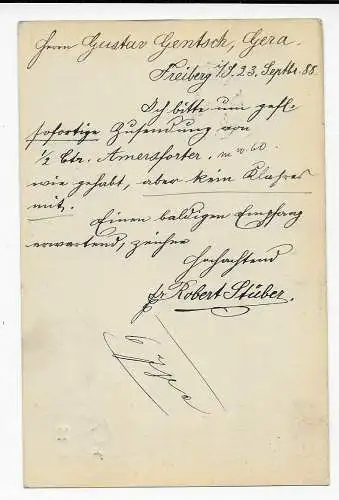 Herrn Gustav Gentsch, Gera.
Freiberg i/S. 23. Septbr. 88.
Ich bitte um gefl
sofortige Zusendung von
1/2 Ctr. Amersforter.
wie gehabt, aber kein
mit.
Einen baldigen Empfang
erwartend, zeichne
Hochachtend
Robert Stüber.